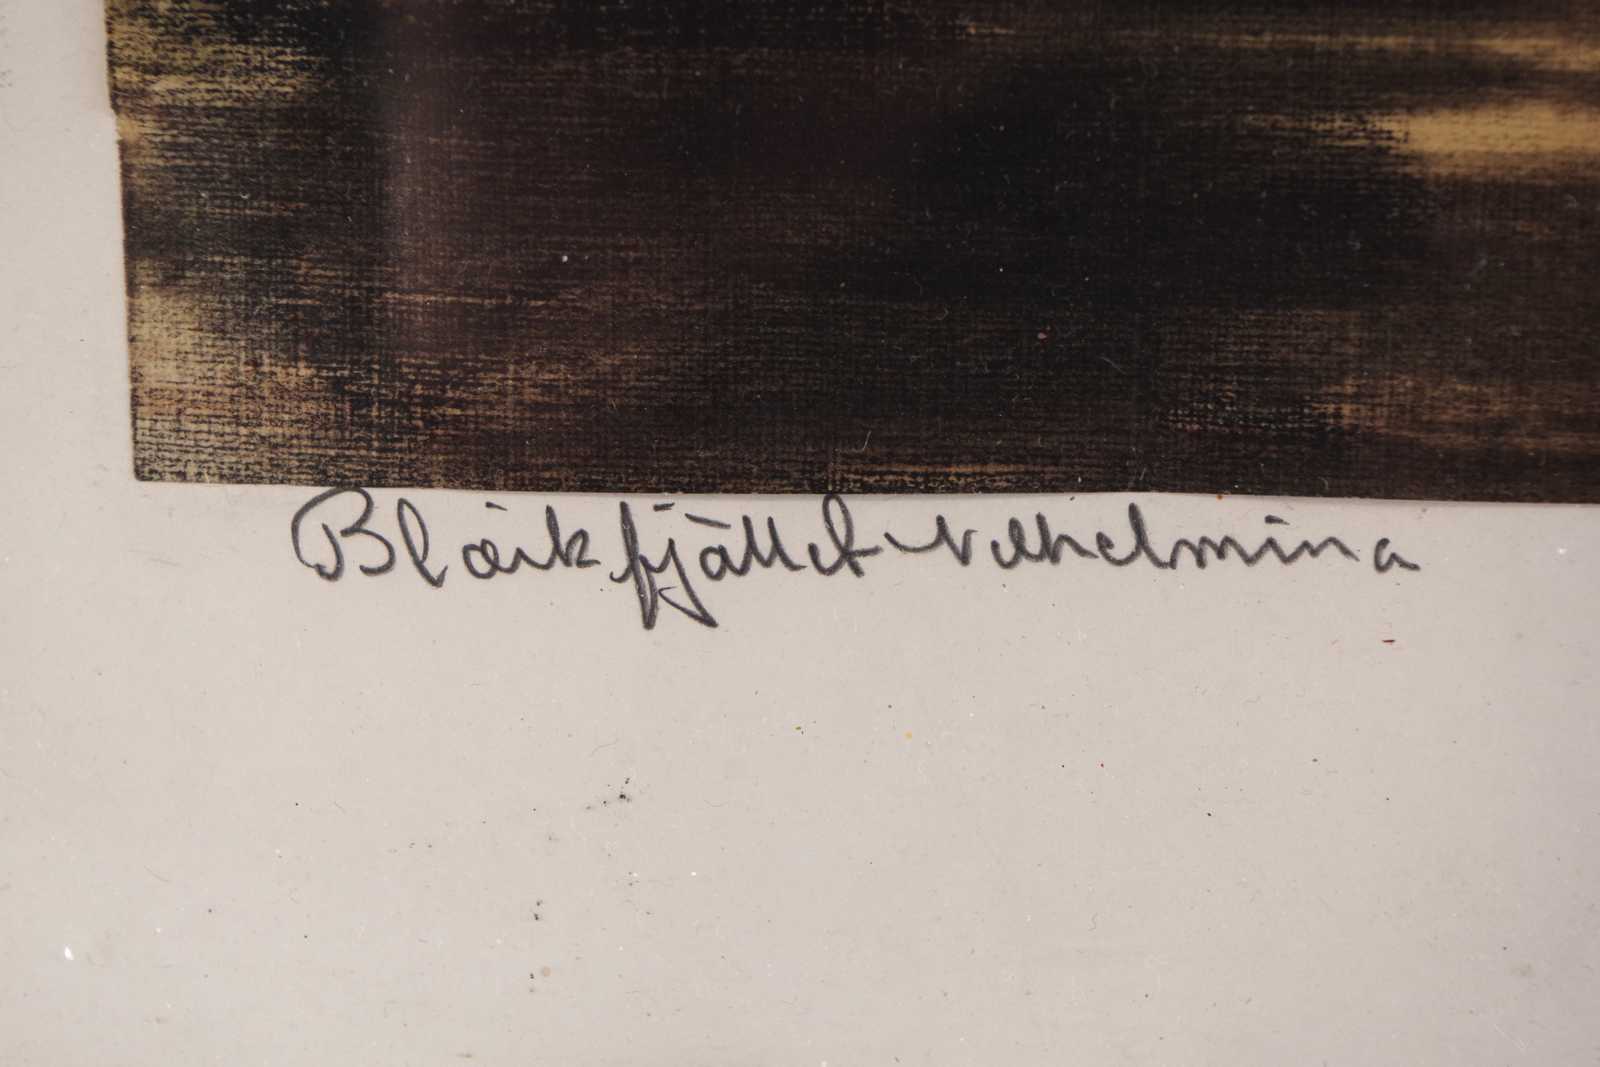 Blaikfjället Vilhelmina